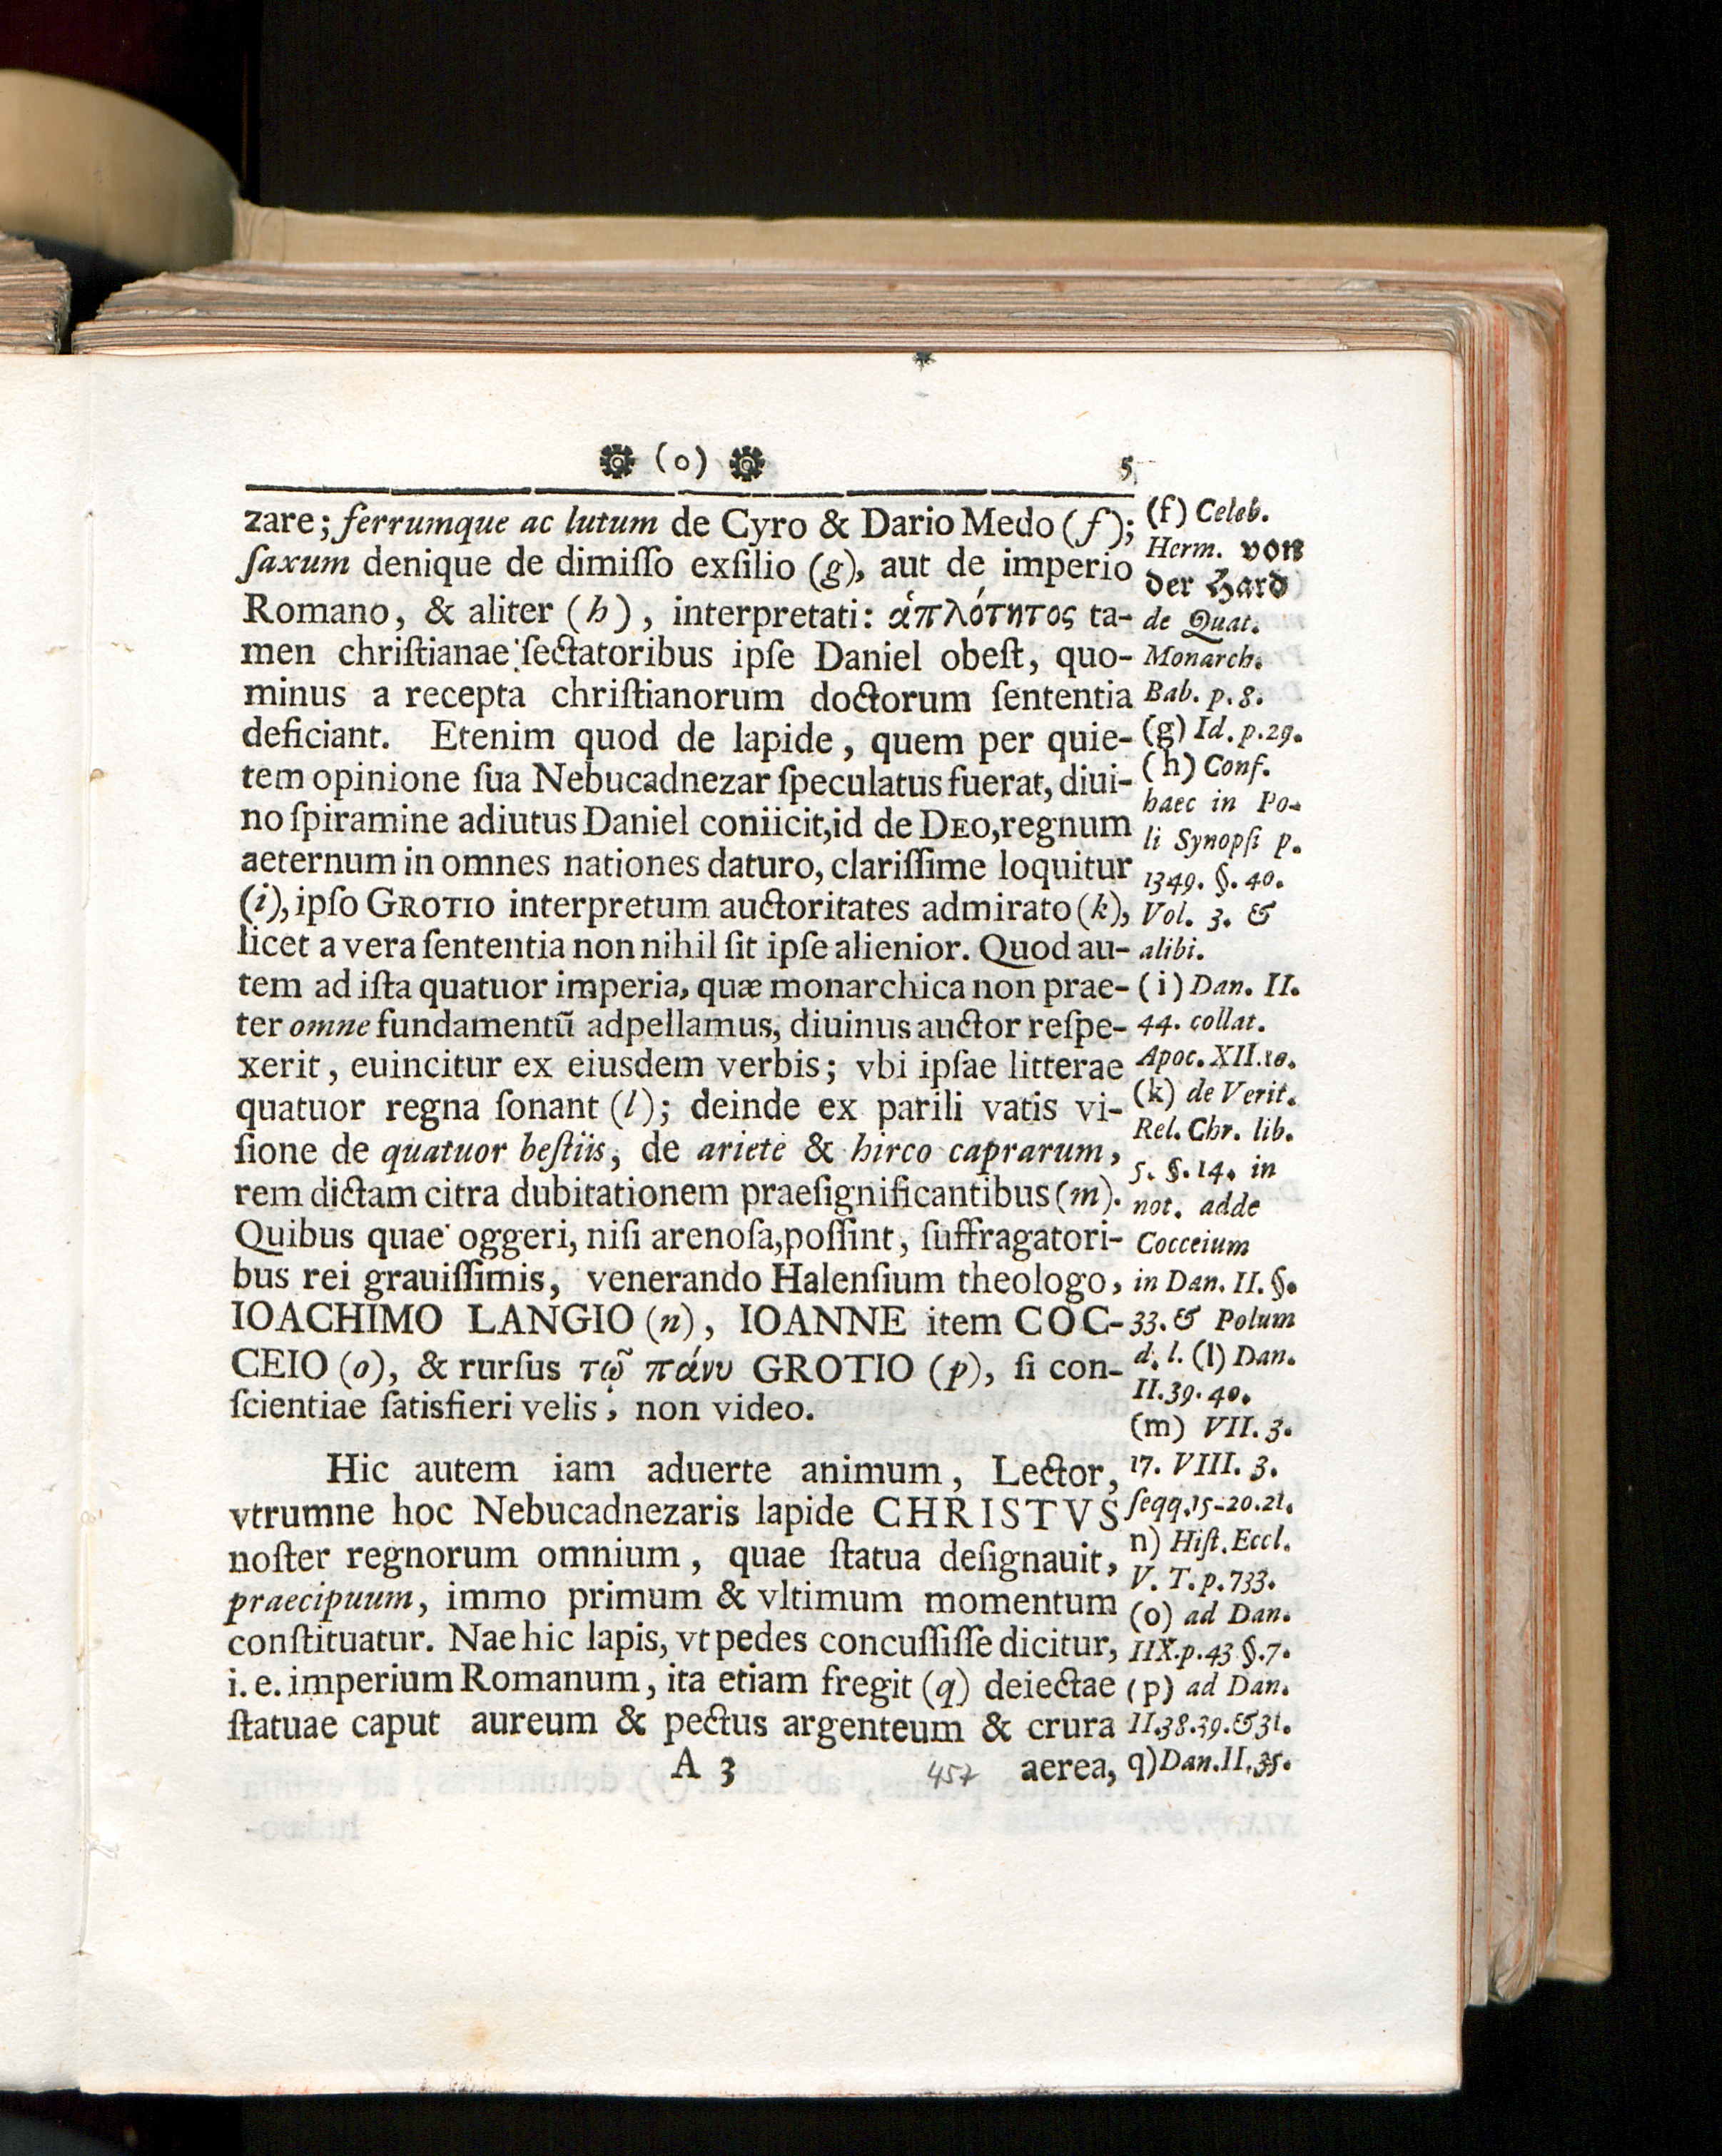 (o) 5
zare; ferrumque ac lutum de Cyro & Dario Medo (f);
ſaxum denique de dimiſſo exſilio (g), aut de imperio
Romano, & aliter (h), interpretati: ἁπλότητος ta-
men chriſtianae ſectatoribus ipſe Daniel obeſt, quo-
minus a recepta chriſtianorum doctorum ſententia
deficiant. Etenim quod de lapide, quem per quie-
tem opinione ſua Nebucadnezar ſpeculatus fuerat, diui-
no ſpiramine adiutus Daniel coniicit, id de DEO, regnum
aeternum in omnes nationes daturo, clariſſime loquitur
(i), ipſo GROTIO interpretum auctoritates admirato (k),
licet a vera ſententia non nihil ſit ipſe alienior. Quod au-
tem ad iſta quatuor imperia, quæ monarchica non prae-
ter omne fundamentū adpellamus, diuinus auctor reſpe-
xerit, euincitur ex eiusdem verbis; vbi ipſae litterae
quatuor regna ſonant (l); deinde ex parili vatis vi-
ſione de quatuor beſtiis, de ariete & hirco caprarum,
rem dictam citra dubitationem praeſignificantibus (m).
Quibus quae oggeri, niſi arenoſa, poſſint, ſuffragatori-
bus rei grauiſſimis, venerando Halenſium theologo,
IOACHIMO LANGIO (n), IOANNE item COC-
CEIO (o), & rurſus τῷ πάνυ GROTIO (p), ſi con-
ſcientiae ſatisfieri velis, non video.
Hic autem iam aduerte animum, Lector,
vtrumne hoc Nebucadnezaris lapide CHRISTVS
noſter regnorum omnium, quae ſtatua deſignauit,
praecipuum, immo primum & vltimum momentum
conſtituatur. Nae hic lapis, vt pedes concuſſiſſe dicitur,
i. e. imperium Romanum, ita etiam fregit (q) deiectae
ſtatuae caput aureum & pectus argenteum & crura
A 3 457 aerea,
(f) Celeb.
Herm. von
der Hard
de Quat.
Monarch.
Bab. p. 8.
(g) Id. p. 29.
(h) Conf.
haec in Po-
li Synopſi p.
1349. §. 40.
Vol. 3. &
alibi.
(i) Dan. II.
44. collat.
Apoc. XII. 10.
(k) de Verit.
Rel. Chr. lib.
5. §. 14. in
not. adde
Cocceium
in Dan. II. §.
33. & Polum
d. l. (l) Dan.
II. 39. 40.
(m) VII. 3.
17. VIII. 3.
ſeqq. 15-20. 21.
n) Hiſt. Eccl.
V. T. p. 733.
(o) ad Dan.
IIX. p. 43 §. 7.
(p) ad Dan.
II. 38. 39. & 31.
q) Dan. II. 35.